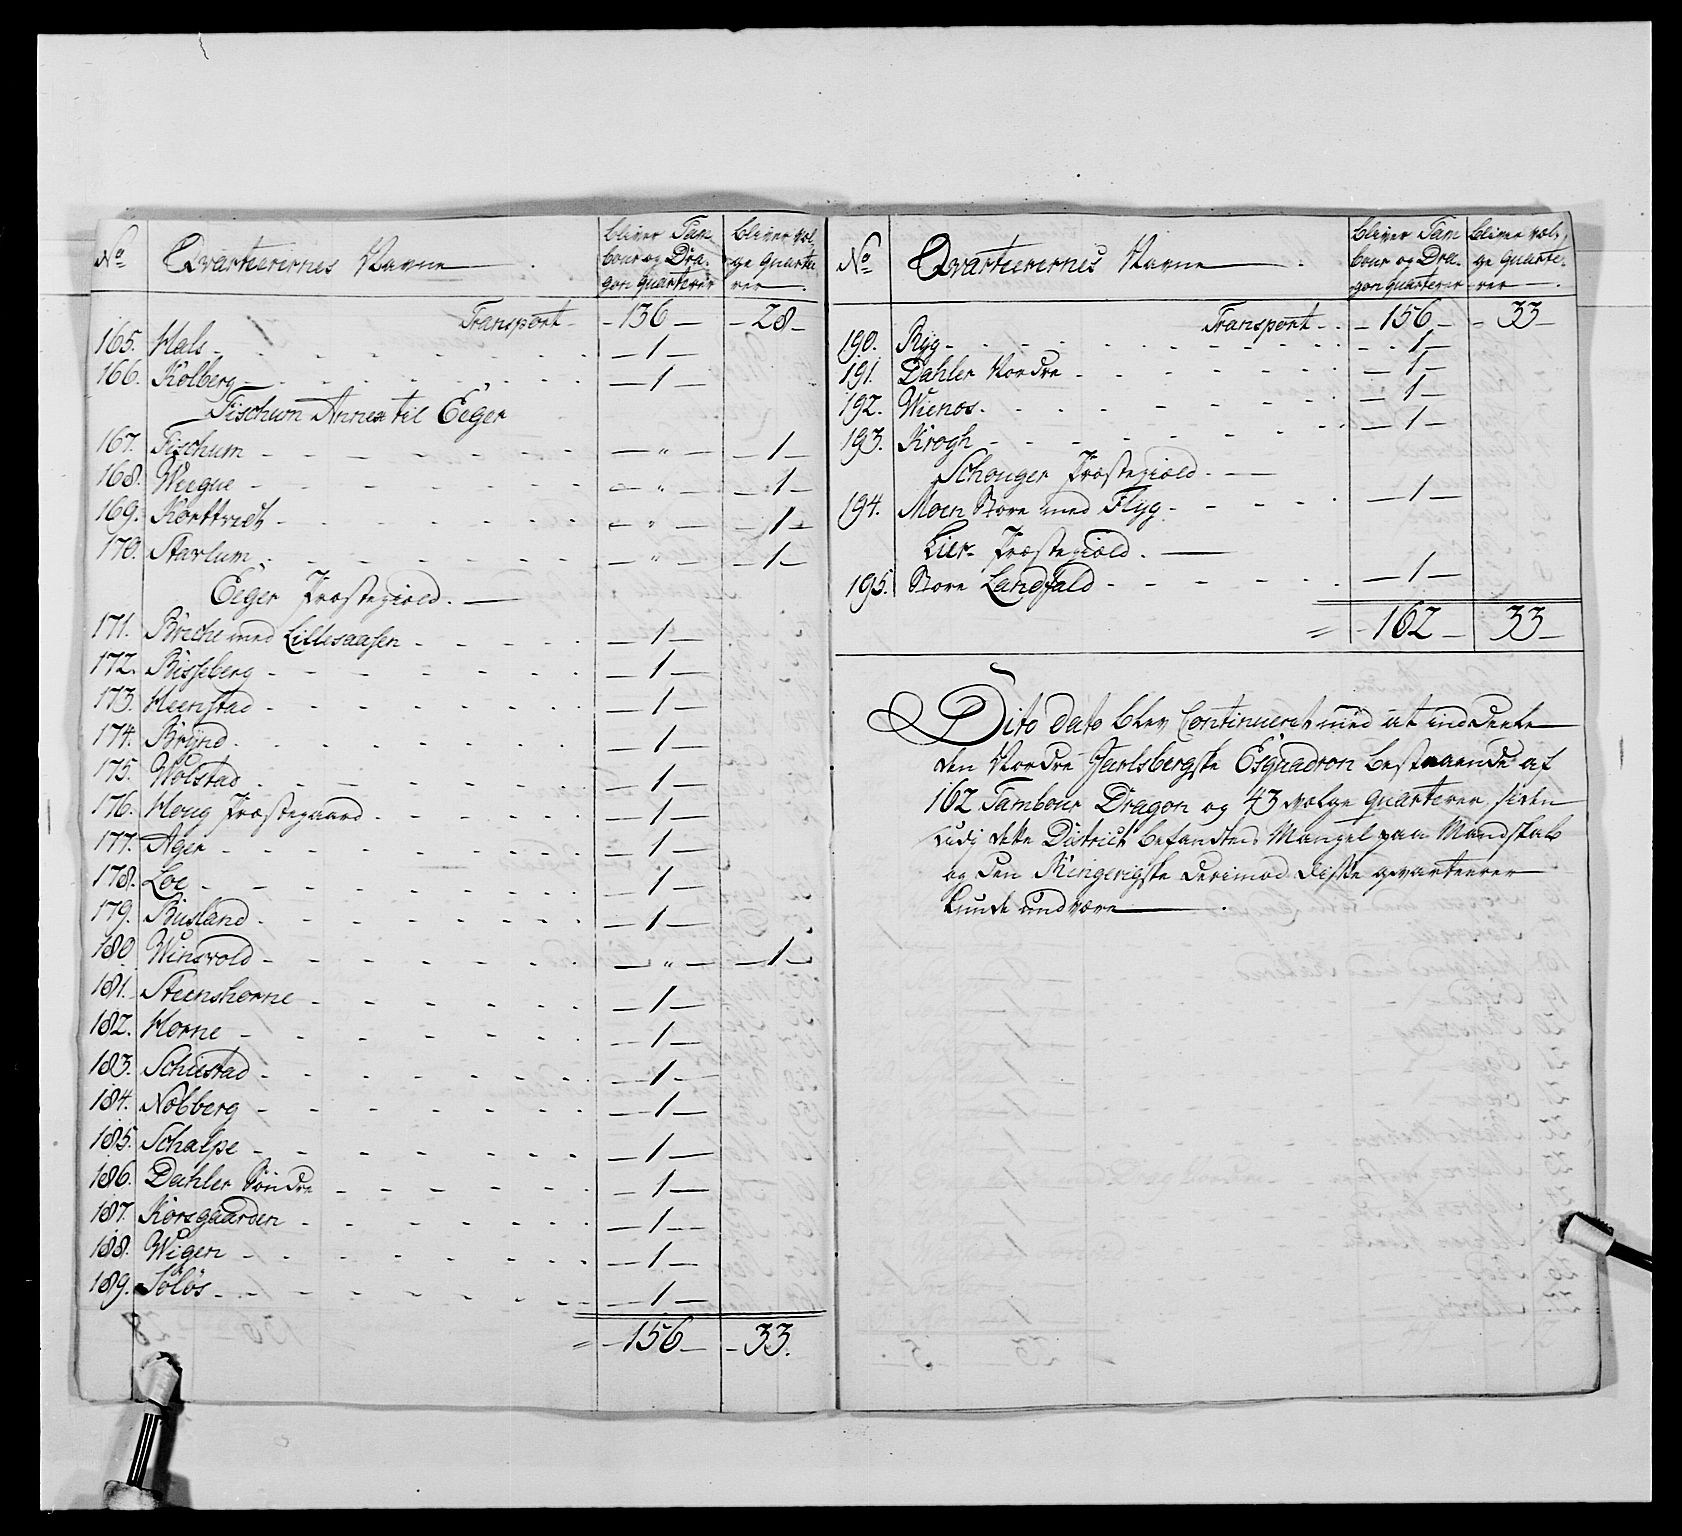 No Qvarteerernes Navne bliver Tam- bliver væl-
bour og Dra- ge quartee-
gon quarterer rer
Transport - 136 - 28
165. Hals - 1
166. Kolberg - 1
Fischum Annex til Eeger
167. Fischum - " - 1
168. Weegue - " - 1
169. Korttvedt - " - 1
170. Starlum - " - 1
Eeger Præstegield.
171. Breche med Lillesaasen - 1
172. Bisseberg - 1
173. Heenstad - 1
174. Brÿnd - 1
175. Wolstad - 1
176. Houg Præstegaard - 1
177. Ager - 1
178. Loe - 1
179. Busland - 1
180. Winsvold - " - 1
181. Steenshorne - 1
182. Horne - 1
183. Schustad - 1
184. Nobberg - 1
185. Schalpe - 1
186. Dahler Søndre - 1
187. Korsgaarden - 1
188. Wigen - 1
189. Soløs - 1
= 156 - 33.
No Qvarteerernes Navne bliver Tam bliver væl-
bour og Dra- ge quarte-
gon quarterer rer
Transport - 156 - 33
190. Ryg - 1
191. Dahler Nordre - 1
192. Wienes - 1
193. Krogh - 1
Schouger Præstegield.
194. Moen Store med Flÿg - 1
Lier Præstegield.
195. Store Landfald - 1
= 162 - 33
Dito Dato blev Continueret med at inddeele
den Nordre Jarlsbergske Esquadron bestaaende af
162 Tambour Dragon og 43 vælge quarterer, siden
udj dette District befandtes Mangel paa Mandskab
og den Ringerigske derimod disse qvarteerer
kunde undvære